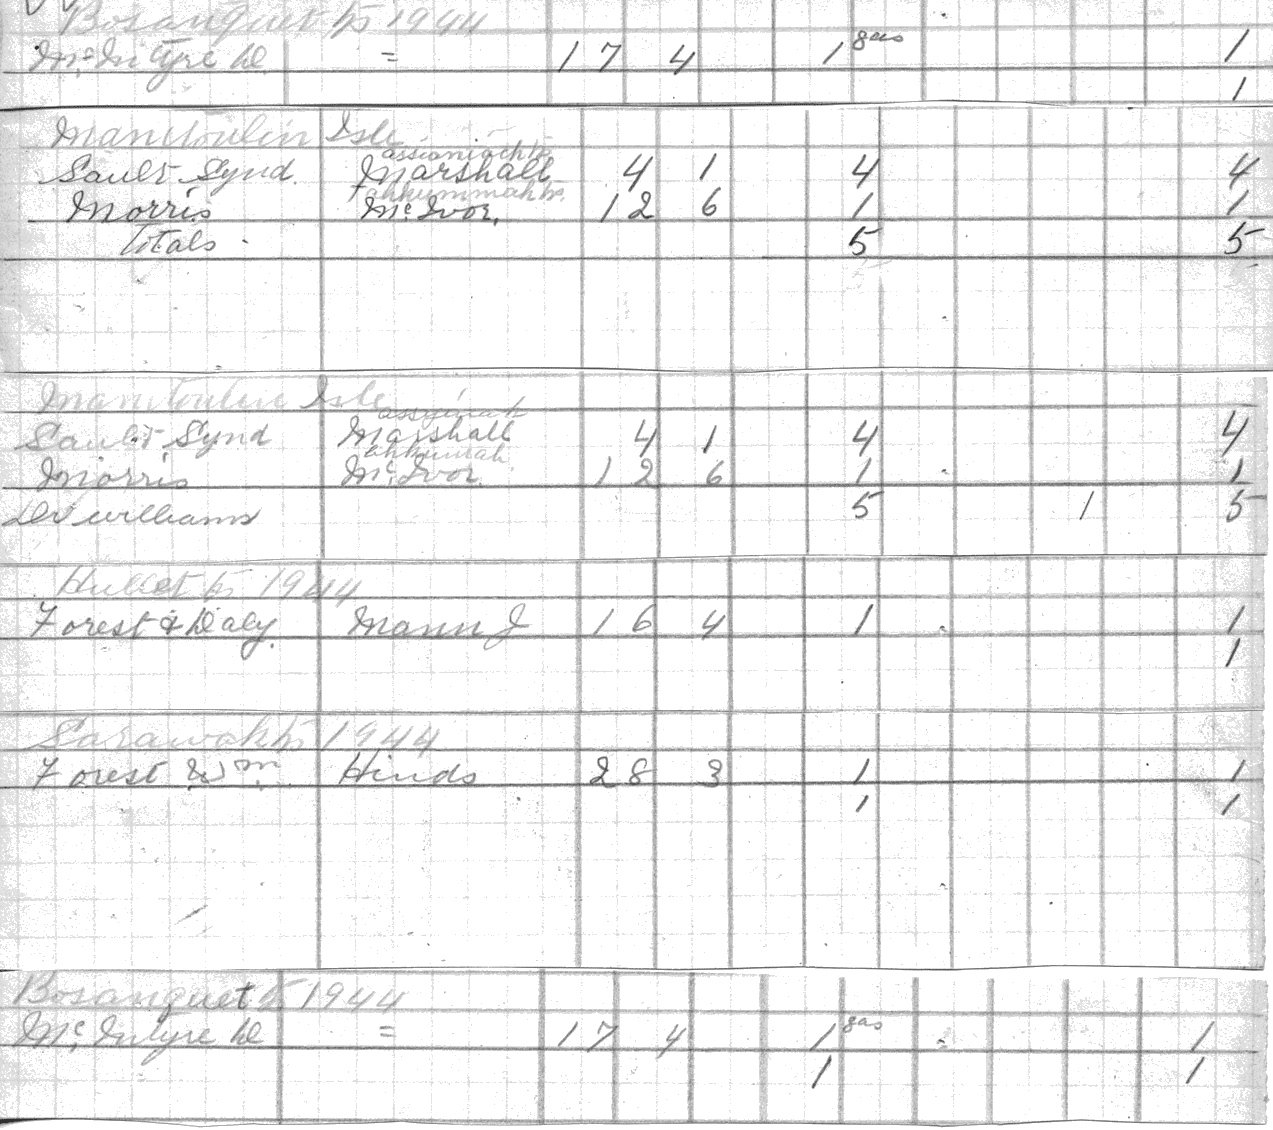 Bosanquet tp 1944
McIntyre D = 17 4 1 gas 1
1
Manitoulin Isle
Sault Synd. Marshall 4 1 4 4
Morris McIvor. 12 6 1 1
Totals 5 5
Manitoulin Isle
assyinak
Sault Synd Marshall 4 1 4 4
Morris McIvor. 12 6 1 1
williams 5 1 5
Hullet tp 1944
Forest & Daly. Mann J 16 4 1 1
1
Sarawak tp 1944
Forest Wm. Hinds 28 3 1 1
1 1
Bosanquet tp 1944
Mc Intyre D = 17 4 1 gas 1
1 1